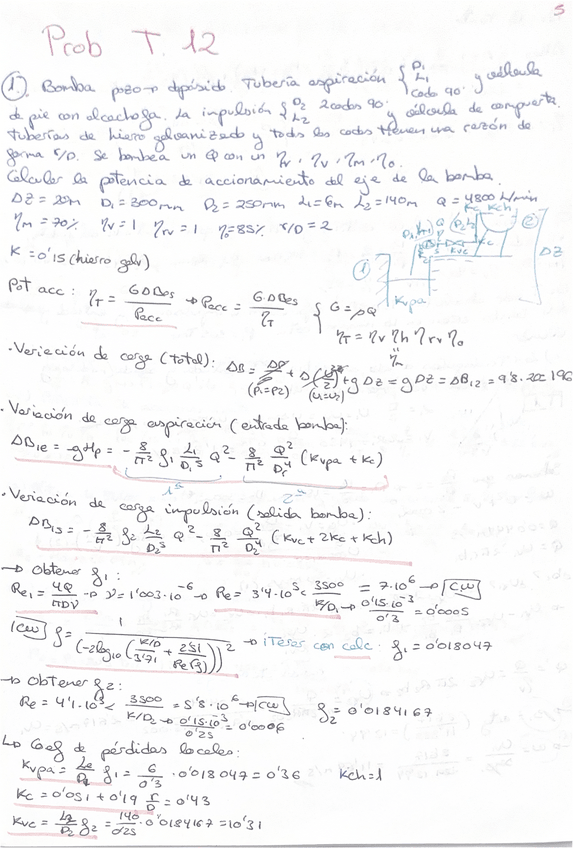 5
Prob T. 12
1. Bomba pozo → depósito. Tubería aspiración { D1 L1 codo 90° y válvula
de pie con alcachofa. La impulsión { D2 L2 2 codos 90° y válvula de compuerta.
Tuberías de hierro galvanizado y todos los codos tienen una razón de
forma r/D. Se bombea un Q con un ηr, ηv, ηm, ηo.
Calcular la potencia de accionamiento del eje de la bomba.
ΔZ = 20m D1 = 300mm D2 = 250mm L1 = 6m L2 = 140m Q = 4800 L/min
ηm = 70% ηv = 1 ηrv = 1 ηo = 85% r/D = 2
K = 0'15 (hierro galv)
① Kvpa Kvc Kc Kch ② ΔZ
Pot acc: ηT = GΔBes / Pacc → Pacc = G·ΔBes / ηT { G = ρQ
ηT = ηv ηh ηrv ηo
ηm
· Variación de carga (total): ΔB = ΔP/ρ + Δ(u²/2) + gΔZ = gΔZ = ΔB12 = 9'8·20 = 196
(P1=P2) (u1=u2)
· Variación de carga aspiración (entrada bomba):
ΔB1e = -gHp = - 8/π² f1 L1/D1⁵ Q² - 8/π² Q²/D1⁴ (Kvpa + Kc)
1ª 2ª
· Variación de carga impulsión (salida bomba):
ΔB1s = - 8/π² f2 L2/D2⁵ Q² - 8/π² Q²/D2⁴ (Kvc + 2Kc + Kch)
→ Obtener f1:
Re1 = 4Q/πDν → ν = 1'003·10⁻⁶ → Re = 3'4·10⁵ < 3500/K/D1 = 7·10⁶ → CW
→ 0'15·10⁻³/0'3 = 0'0005
CW f = 1/(-2log10(K/D/3'71 + 2'51/Re√f))² → ¡Teser con calc. f1 = 0'018047
→ Obtener f2:
Re = 4'1·10⁵ < 3500/K/D2 = 5'8·10⁶ → CW f2 = 0'0184167
→ 0'15·10⁻³/0'25 = 0'0006
↳ Coef de pérdidas locales:
Kvpa = Le/D1 f1 = 6/0'3 · 0'018047 = 0'36 Kch = 1
Kc = 0'051 + 0'19 r/D = 0'43
Kvc = L2/D2 f2 = 140/0'25 · 0'0184167 = 10'31